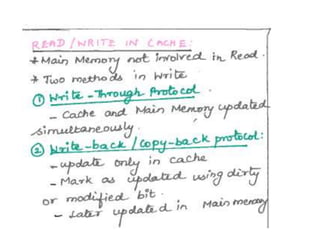 READ/WRITE IN CACHE:
* Main Memory not involved in Read.
* Two methods in Write
① Write-Through Protocol.
- Cache and Main Memory updated
simultaneously.
② Write-back/copy-back protocol:
- update only in cache
- Mark as updated using dirty
or modified bit.
- Later updated in Main memory